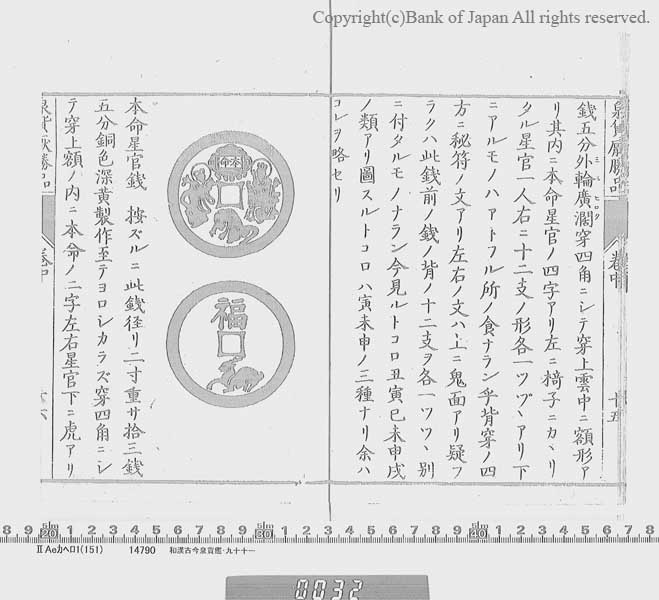 Copyright(c)Bank of Japan All rights reserved.
錢五分外輪廣濶穿四角ニシテ穿上雲中ニ額形ア
ミヒロク
リ其内ニ本命星官ノ四字アリ左ニ椅子ニカヽリ
タル星官一人右ニ十二支ノ形各一ツヅヽアリ下
ニアルモノハアトフル所ノ食ナラン乎背穿ノ四
方ニ秘符ノ文アリ左右ノ文ハ上ニ鬼面アリ疑フ
ラクハ此錢前ノ錢ノ背ノ十二支ヲ各一ツツヽ別
ニ付タルモノナラン今見ルトコロ丑寅巳未申戌
ノ類アリ圖スルトコロハ寅未申ノ三種ナリ余ハ
コレヲ略セリ
卷中
十五
本命
福
本命星官錢 按ズルニ此錢径リ二寸重サ拾三錢
五分銅色深黄製作至テヨロシカラズ穿四角ニシ
テ穿上額ノ内ニ本命ノ二字左右星官下ニ虎アリ
8 9 5㎝20 1 2 3 4 5 6 7 8 9 5㎝30 1 2 3 4 5 6 7 8 9 5㎝40 1 2 3 4 5 6 7 8
ⅡAeカヘロ1(151) 14790 和漢古今泉貨鑑・九十十一
0032